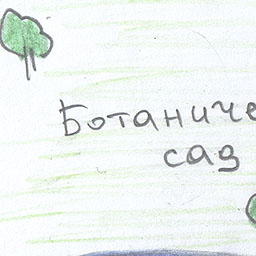 Ботаниче
сад